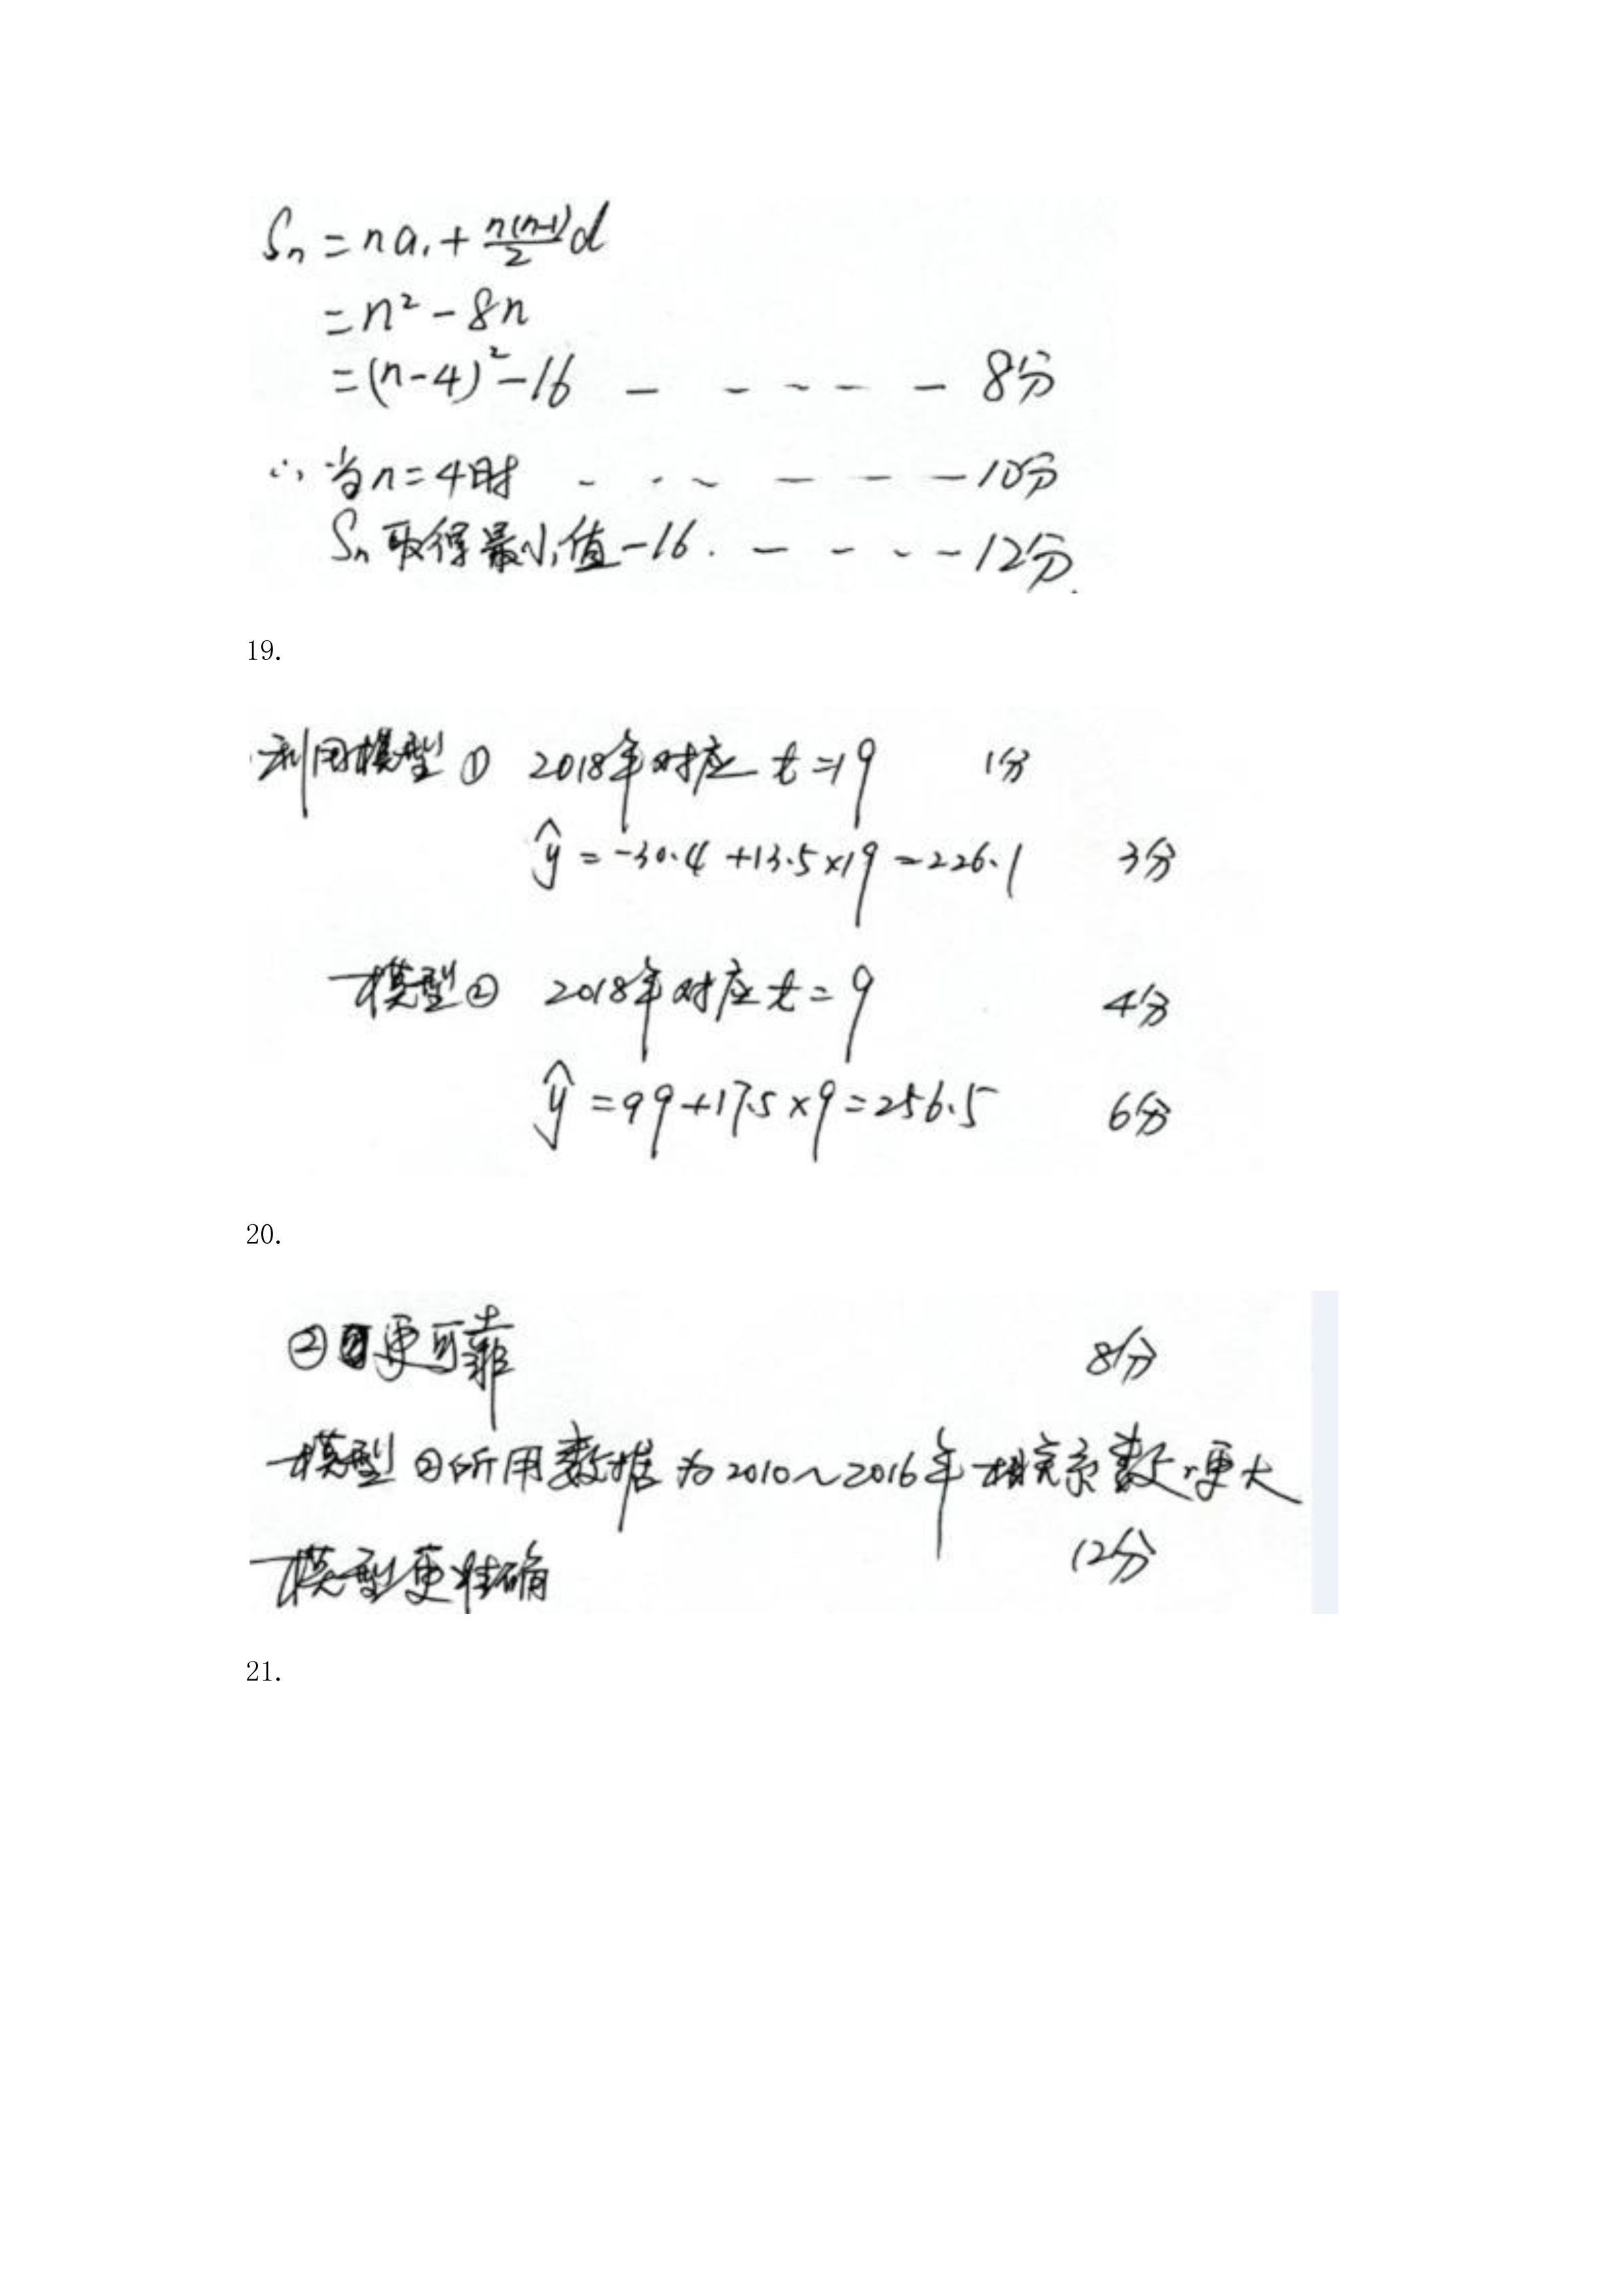 Sn = na₁ + n(n-1)/2 d
= n² - 8n
= (n-4)² - 16 - - - - - - 8分
∴ 当n=4时 - - - - - - 10分
Sn取得最小值-16. - - - - 12分.
19.
利用模型① 2018年对应t=19 1分
ŷ = -30.4 + 13.5×19 = 226.1 3分
模型② 2018年对应t=9 4分
ŷ = 99 + 17.5×9 = 256.5 6分
20.
② 更可靠 8分
模型②所用数据为2010~2016年相关系数r更大
模型更准确 12分
21.